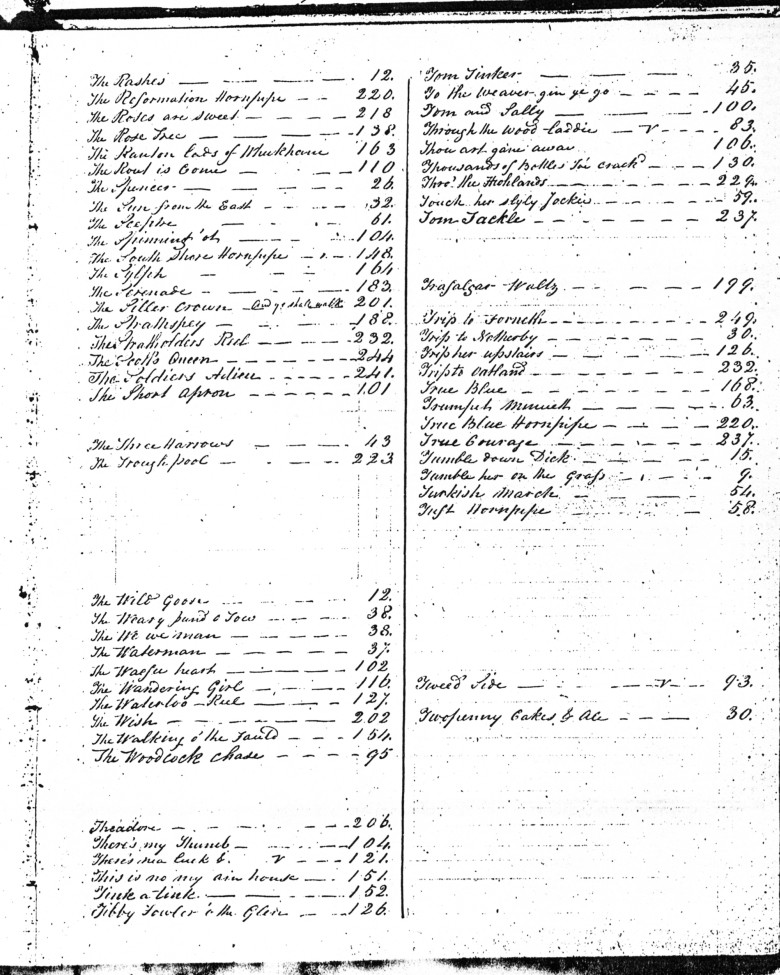 The Rashes — — — — 12.
The Reformation Hornpipe – – 220.
The Roses are sweet — — – 218
The Rose Tree – — — — – 138.
The Ranton Lads of Whickhame 163
The Rout is Come — — — 110
The Spencer — — — — 26
The Sun from the East — — – 32.
The Sceptre — — — — 61.
The Spinning o't — — — — 104.
The South Shore Hornpipe – – – 148.
The Sylph — – — — – 164
The Serenade – — — — – 183.
The Siller Crown – And ye shall walk 201.
The Strathspey — — — – – 188.
The Stadholders Reel – – – – – 232.
The Scott's Queen – – – – – – 244
The Soldiers Adieu – – – – – 241.
The Short Apron – – – – – – 101
The Three Harrows – — — — 43
The Trough pool – — – — – – 223
The Wild Goose — — — — 12.
The Weary pund o Tow – – — 38.
The We we man – — — — — 38.
The Waterman – – – — – 37.
The Waefu heart — — — — 102
The Wandering Girl – – – – – 116.
The Waterloo Reel – – — – – 127.
The Wish – – – — — — – 202
The Walking o' the Fauld – – – – 154.
The Woodcock chase – – – – – 95
Theadore – — – — – – 206.
There's my Thumb – — — – – 104.
There's nea luck &. V – – – 121.
This is no my ain house — – 151.
Tink a-tink — — — — 152.
Tibby Fowler o' the Glen – — – 126.
Tom Tinker – — — — 35.
To the Weaver gin ye go – – – – 45.
Tom and Sally — — — 100.
Through the Wood Laddie – V – – 83.
Thou art gane awa 106.
Thousands of Bottles I've crack'd – – – 130.
Thro' the Highlands – – – – – 229.
Touch her slyly Jockie – – – – 59.
Tom Tackle – – – – – – – 237.
Trafalgar Waltz – – — – – 199.
Trip to Forneth – – – – – – 249.
Trip to Netherby – – – – – – 30.
Trip her upstairs – – – – – – 126.
Trip to Oatland – – – – – – 232.
True Blue – – — – — – – 168.
Trumpet Minuett – – – – – 63.
True Blue Hornpipe – – – – 220.
True Courage – – – – – – 237.
Tumble down Dick – – – – 15.
Tumble her on the Grass – – – – 9.
Turkish March – – – — – – 54.
Tuft Hornpipe – – – – – – – 58.
Tweed Side – — – — V – – 93.
Twopenny Cakes & Ale – – – — 30.